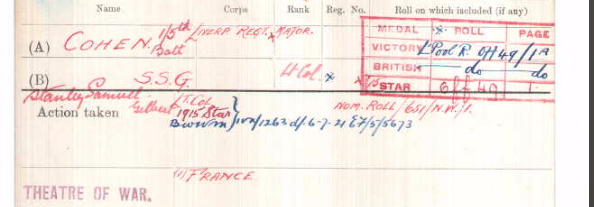 Name Corps Rank Reg. No Roll on which included (if any)
(A) COHEN. 1/5th Batt L'VERP REGT. x MAJOR.
MEDAL x ROLL PAGE
VICTORY L'Pool R. Off 49/1A
BRITISH do do
(B) S.S.G. Lt Col. x
x 15 STAR Off 49 1.
Stanley Samuel Gilbert Lt. Col
NOM. ROLL/651/N.W/1.
Action taken 1915 Star
B.W.V.M /1263 d/6-7-21 E7/5/5673
(1) FRANCE
THEATRE OF WAR.